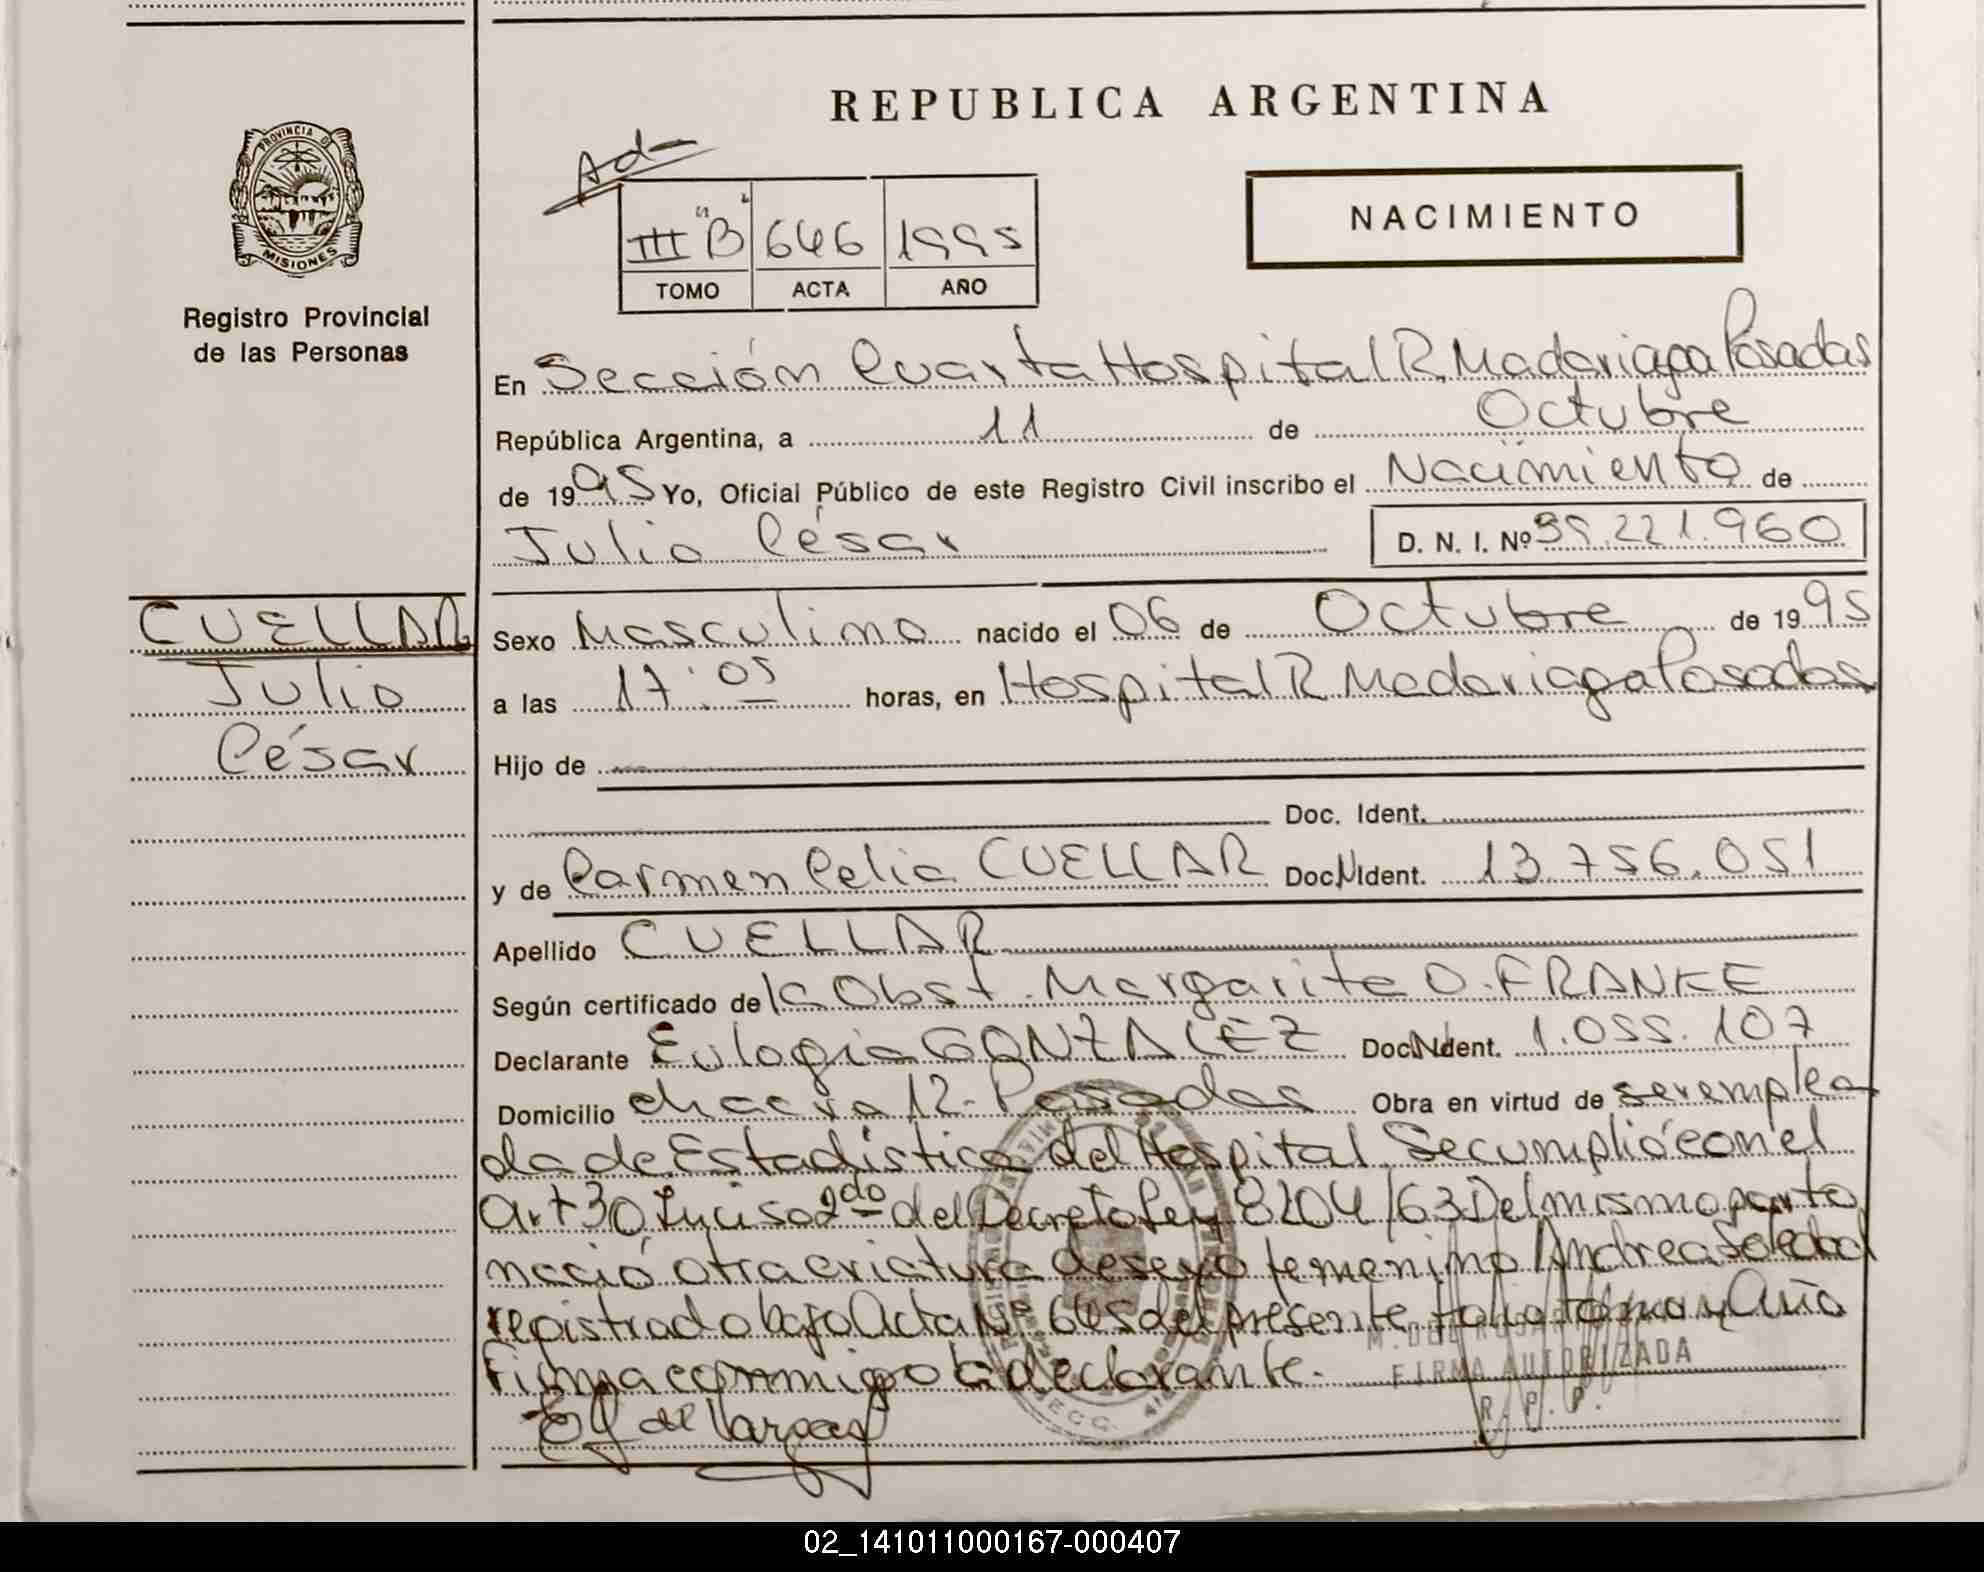 REPUBLICA ARGENTINA
Ad-
PROVINCIA DE
MISIONES
III "B"
646
1995
TOMO
ACTA
AÑO
NACIMIENTO
Registro Provincial
de las Personas
En Sección Cuarta Hospital R. Madariaga Posadas
República Argentina, a 11 de Octubre
de 1995 Yo, Oficial Público de este Registro Civil inscribo el Nacimiento de
Julio César
D. N. I. Nº 39.221.960
CUELLAR
Julio
César
Sexo Masculino nacido el 06 de Octubre de 1995
a las 17:05 horas, en Hospital R Madariaga Posadas
Hijo de
Doc. Ident.
y de Carmen Celia CUELLAR Doc N Ident. 13.756.051
Apellido CUELLAR
Según certificado de la Obst. Margarita O. FRANKE
Declarante Eulogia GONZALEZ Doc N Ident. 1.055.107
Domicilio chacra 12 - Posadas Obra en virtud de ser emplea
da de Estadística del Hospital. Se cumplió con el
Art 30 Inciso 2do del Decreto Ley 8204/63 Del mismo parto
nació otra criatura de sexo femenino Andrea Soledad
registrado bajo Acta Nº 645 del presente folio tomo y Año
Firma conmigo la declarante.
FIRMA AUTORIZADA
R. P. P.
EG de Vargas
02_141011000167-000407